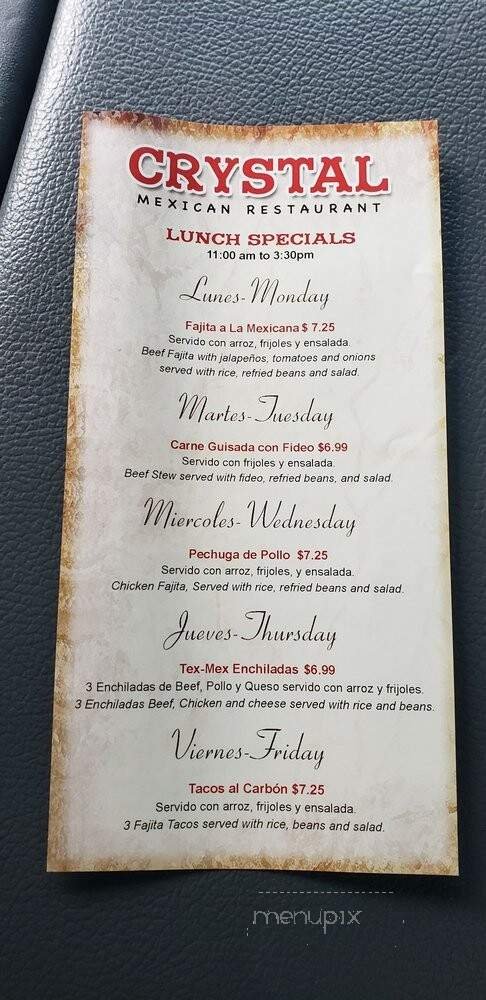 CRYSTAL
MEXICAN RESTAURANT
LUNCH SPECIALS
11:00 am to 3:30pm
Lunes-Monday
Fajita a La Mexicana $ 7.25
Servido con arroz, frijoles y ensalada.
Beef Fajita with jalapeños, tomatoes and onions
served with rice, refried beans and salad.
Martes-Tuesday
Carne Guisada con Fideo $6.99
Servido con frijoles y ensalada.
Beef Stew served with fideo, refried beans, and salad.
Miercoles-Wednesday
Pechuga de Pollo $7.25
Servido con arroz, frijoles, y ensalada.
Chicken Fajita, Served with rice, refried beans and salad.
Jueves-Thursday
Tex-Mex Enchiladas $6.99
3 Enchiladas de Beef, Pollo y Queso servido con arroz y frijoles.
3 Enchiladas Beef, Chicken and cheese served with rice and beans.
Viernes-Friday
Tacos al Carbón $7.25
Servido con arroz, frijoles y ensalada.
3 Fajita Tacos served with rice, beans and salad.
menupix